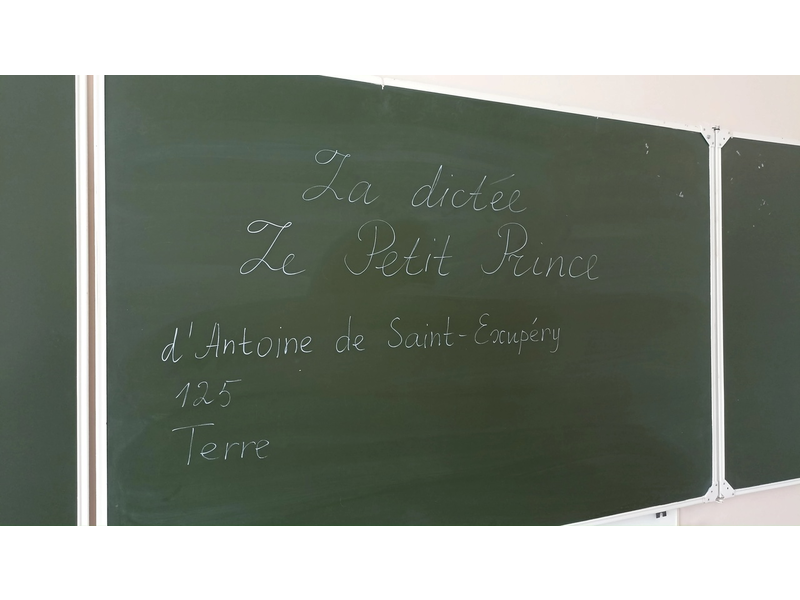 La dictée
Le Petit Prince
d'Antoine de Saint-Exupéry
125
Terre